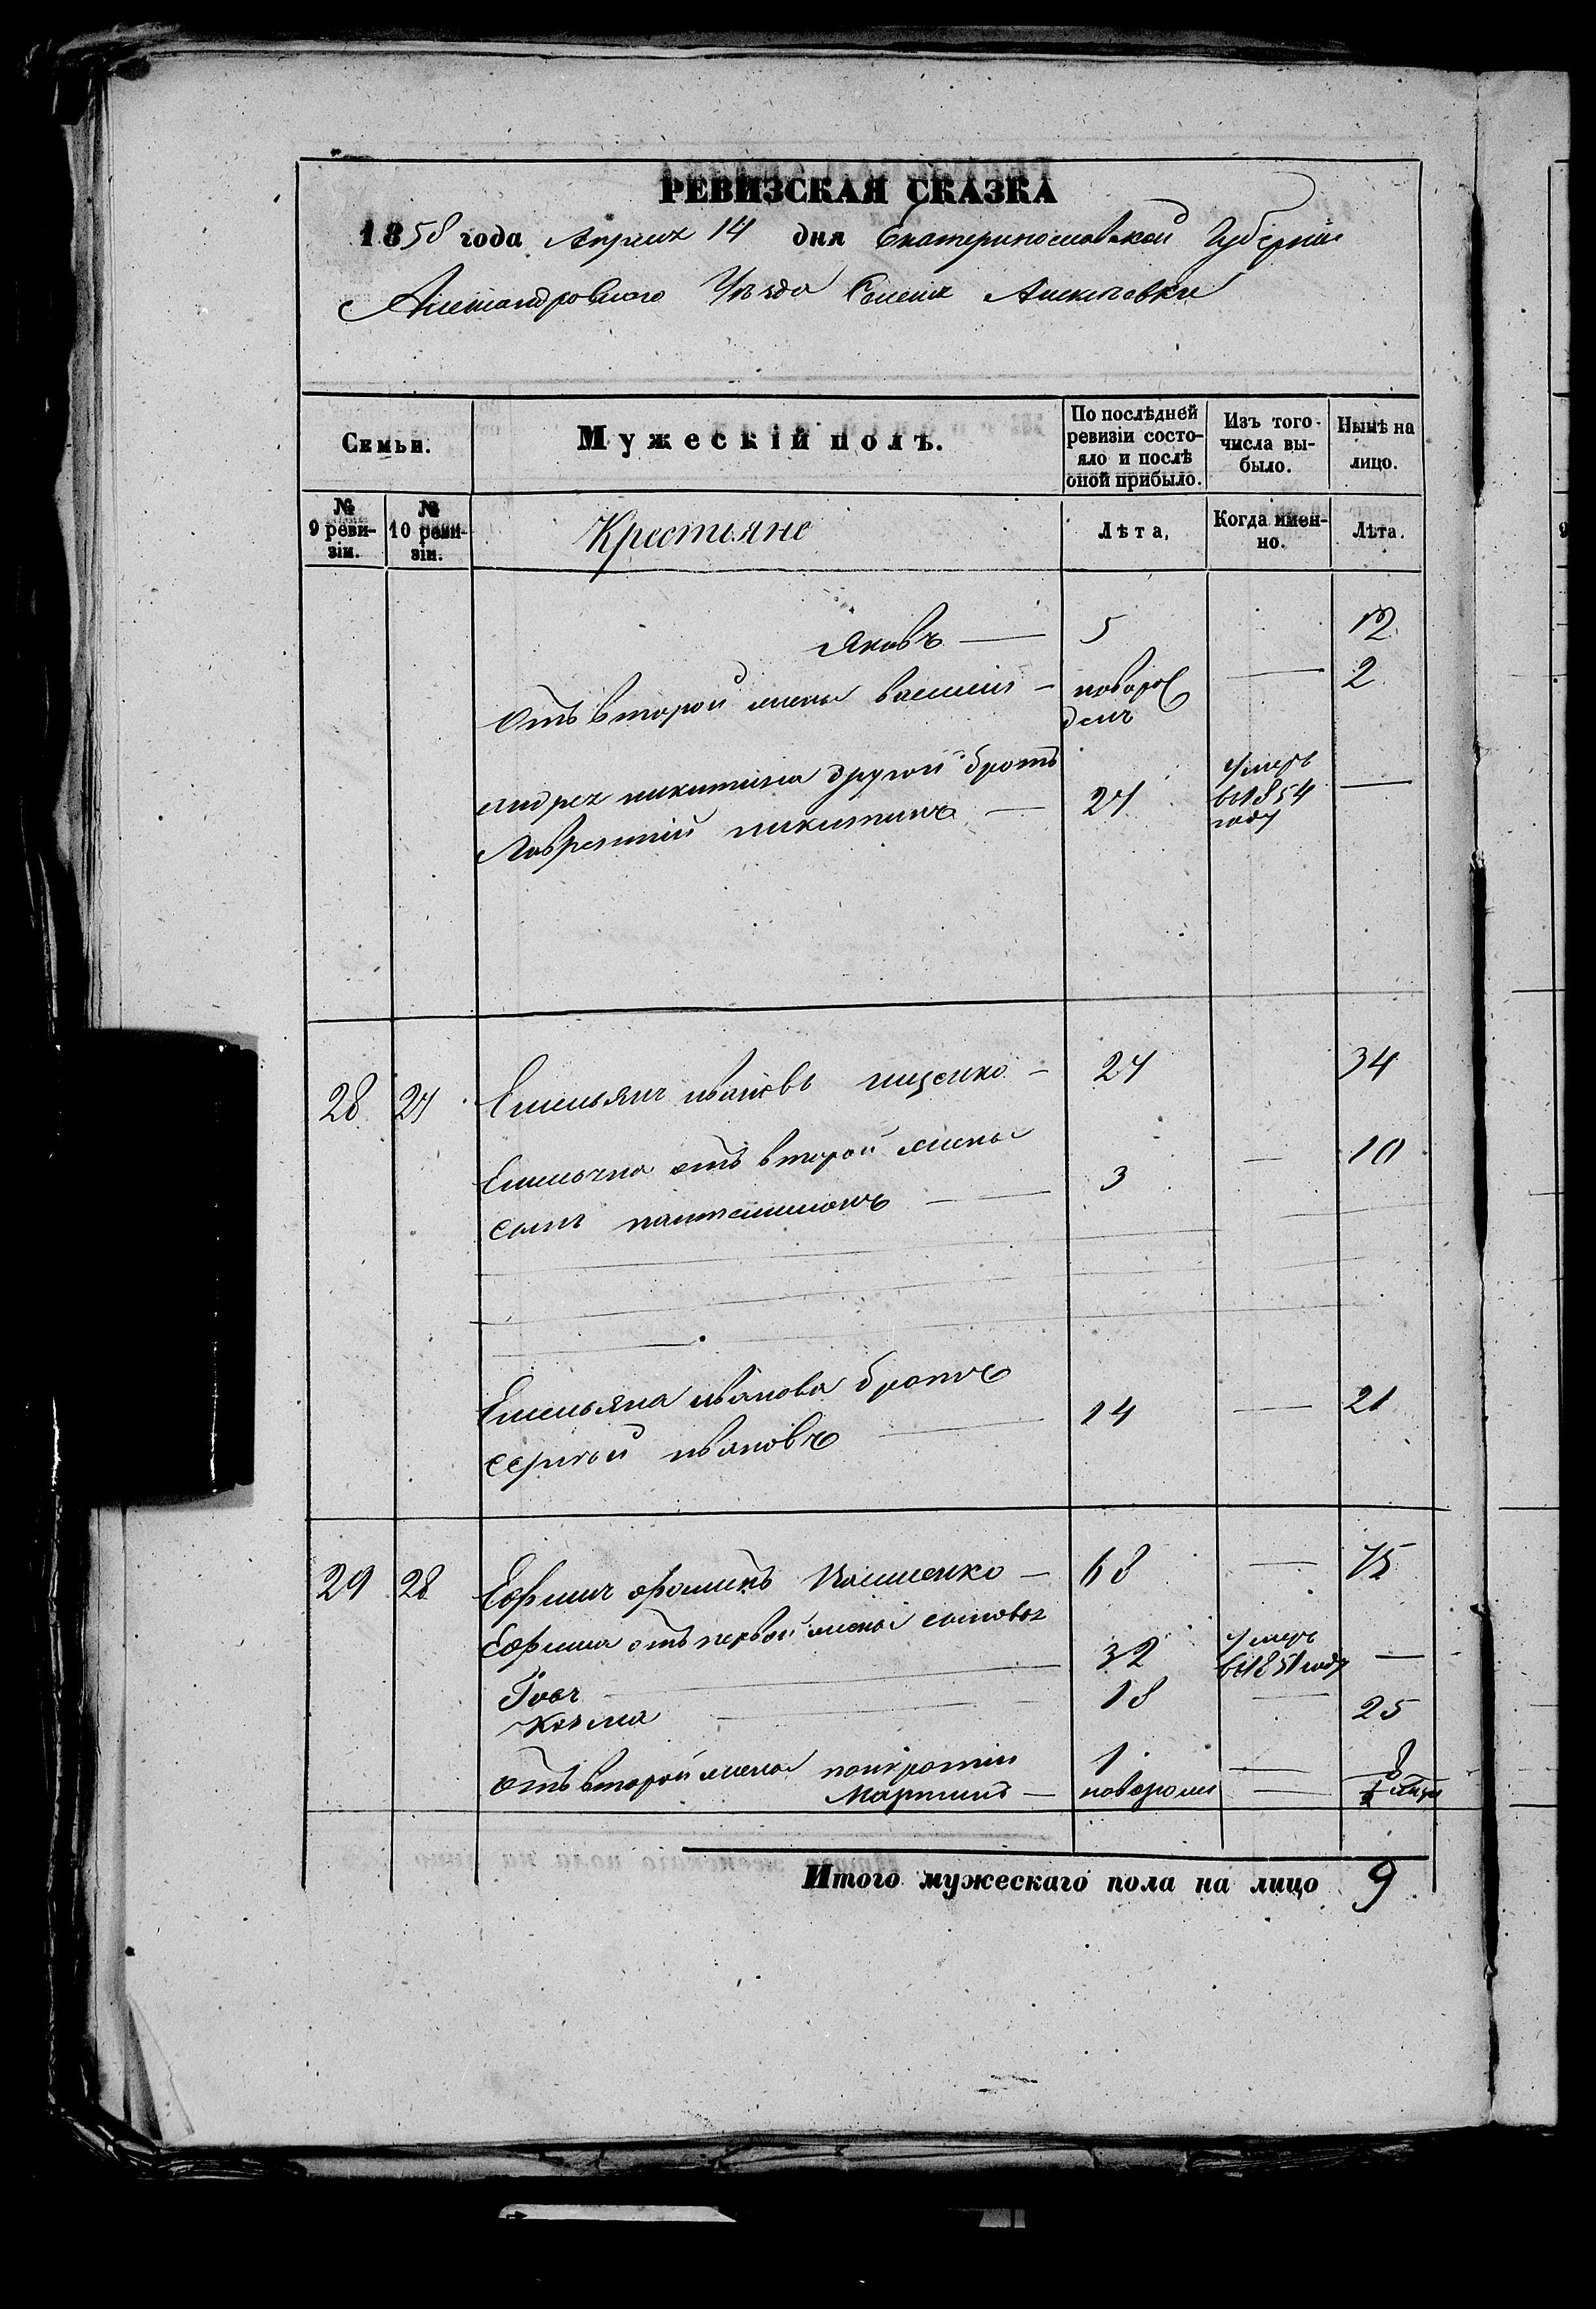 РЕВИЗСКАЯ СКАЗКА
1858 года Апреля 14 дня Екатеринославской Губернии
Александровскаго Уѣзда Селенія
Семьи. Мужескій полъ. По послѣдней ревизіи состояло и послѣ оной прибыло. Изъ того числа выбыло. Нынѣ на лицо.
№ 9 ревизіи. № 10 ревизіи. Крестьяне Лѣта, Когда именно. Лѣта.
Яковъ — 5 12
отъ второй жены василий — новорожденъ — 2
андрея никитина другой братъ
Лаврентий никитинъ — 27 умеръ в 1854 году —
28 27 Емельянъ ивановъ — 27 34
Емельяна отъ второй жены
сынъ пантелимонъ — 3 — 10
Емельяна иванова братъ
сергей ивановъ — 14 — 21
29 28 Ефимъ фоминъ — 68 — 75
Ефима отъ первой жены сыновья
Іовъ — 32 умеръ в 1851 году —
Козма — 18 — 25
отъ второй жены панкратий 1 — 8
Мартинъ — новорож —
Итого мужескаго пола на лицо 9